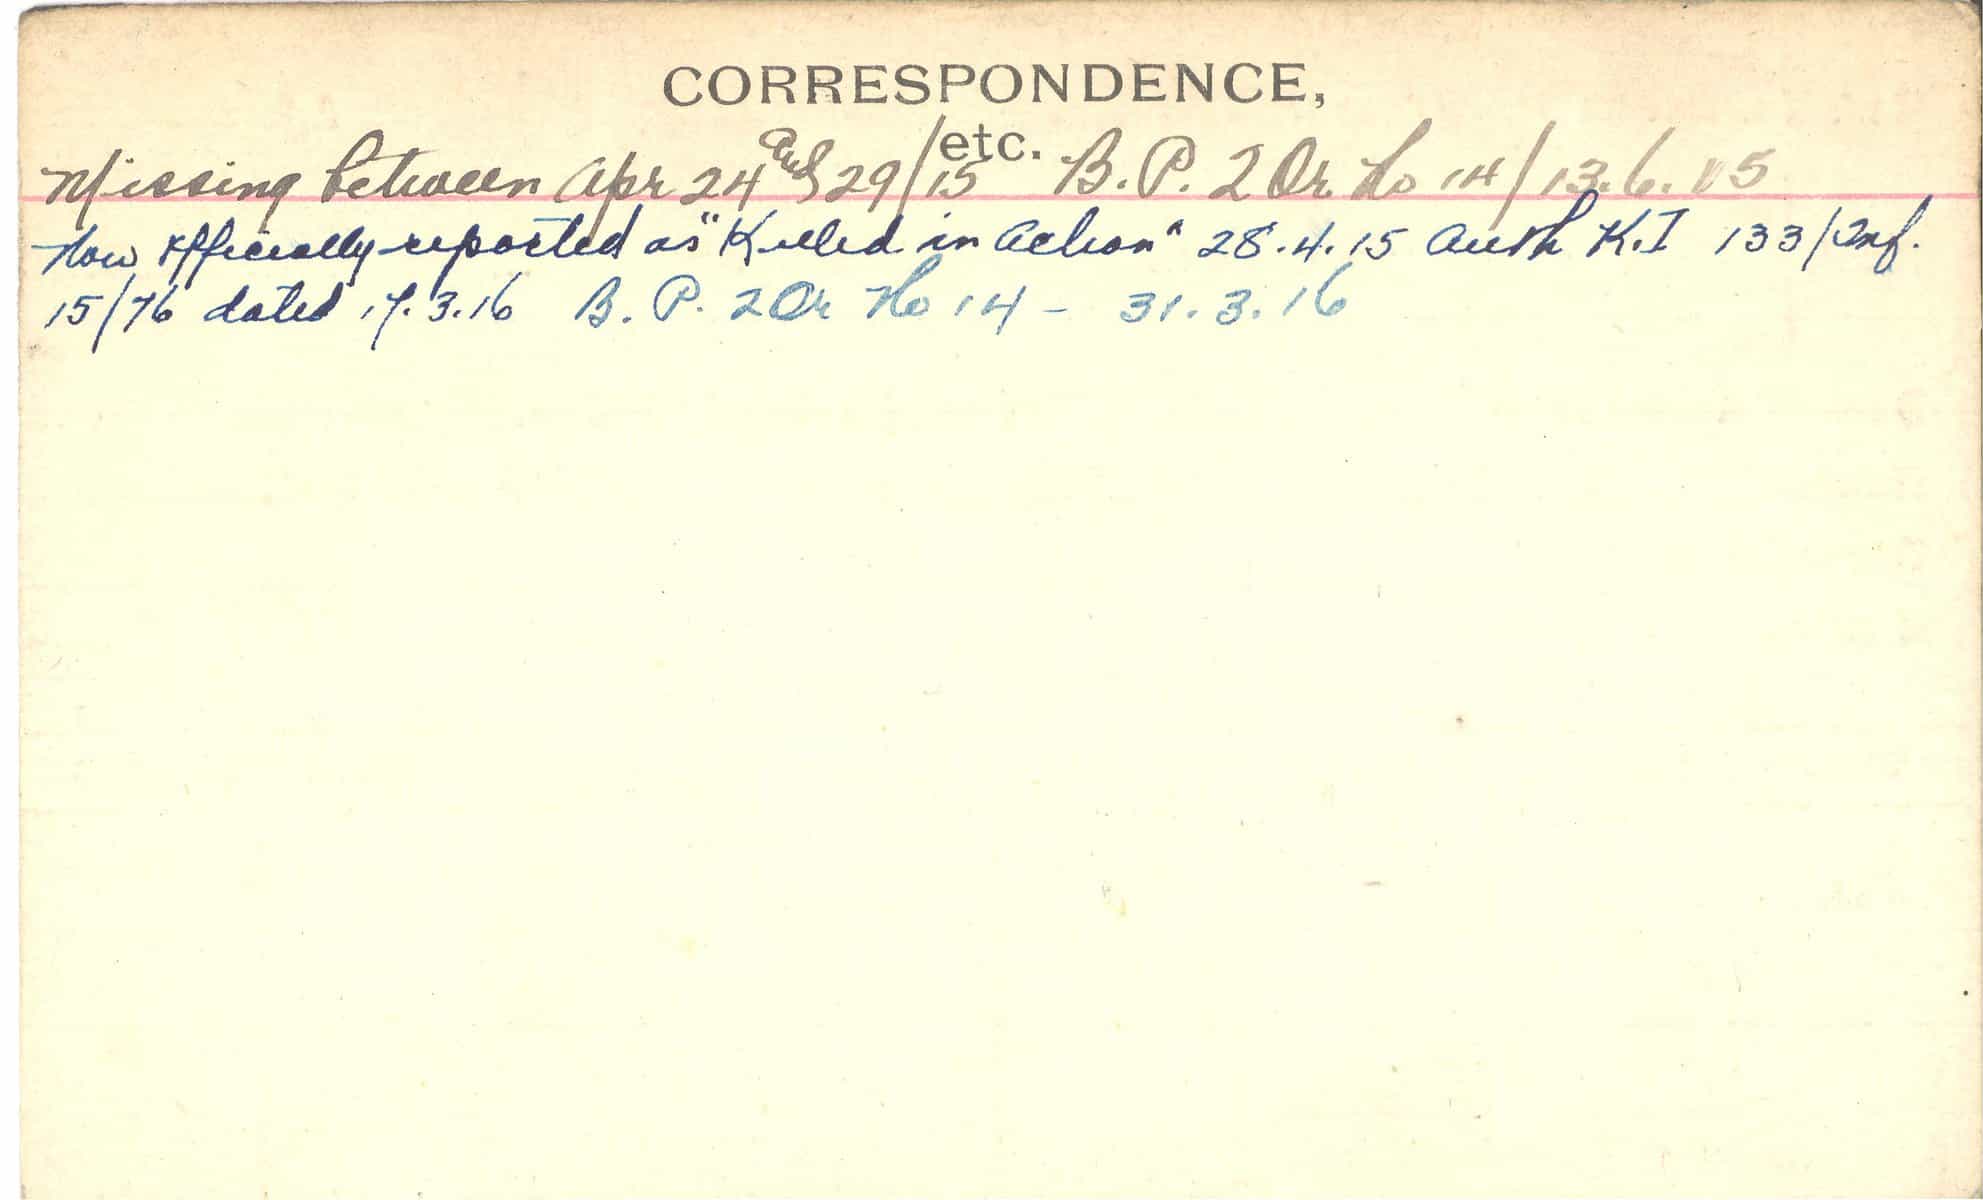 CORRESPONDENCE,
etc.
Missing between Apr 24 and 29/15 B. P. 2 Or No 14/13.6.15
Now officially reported as "Killed in Action" 28.4.15 Auth K.I 133/Inf.
15/76 dated 17.3.16 B. P. 2 Or No 14 - 31.3.16